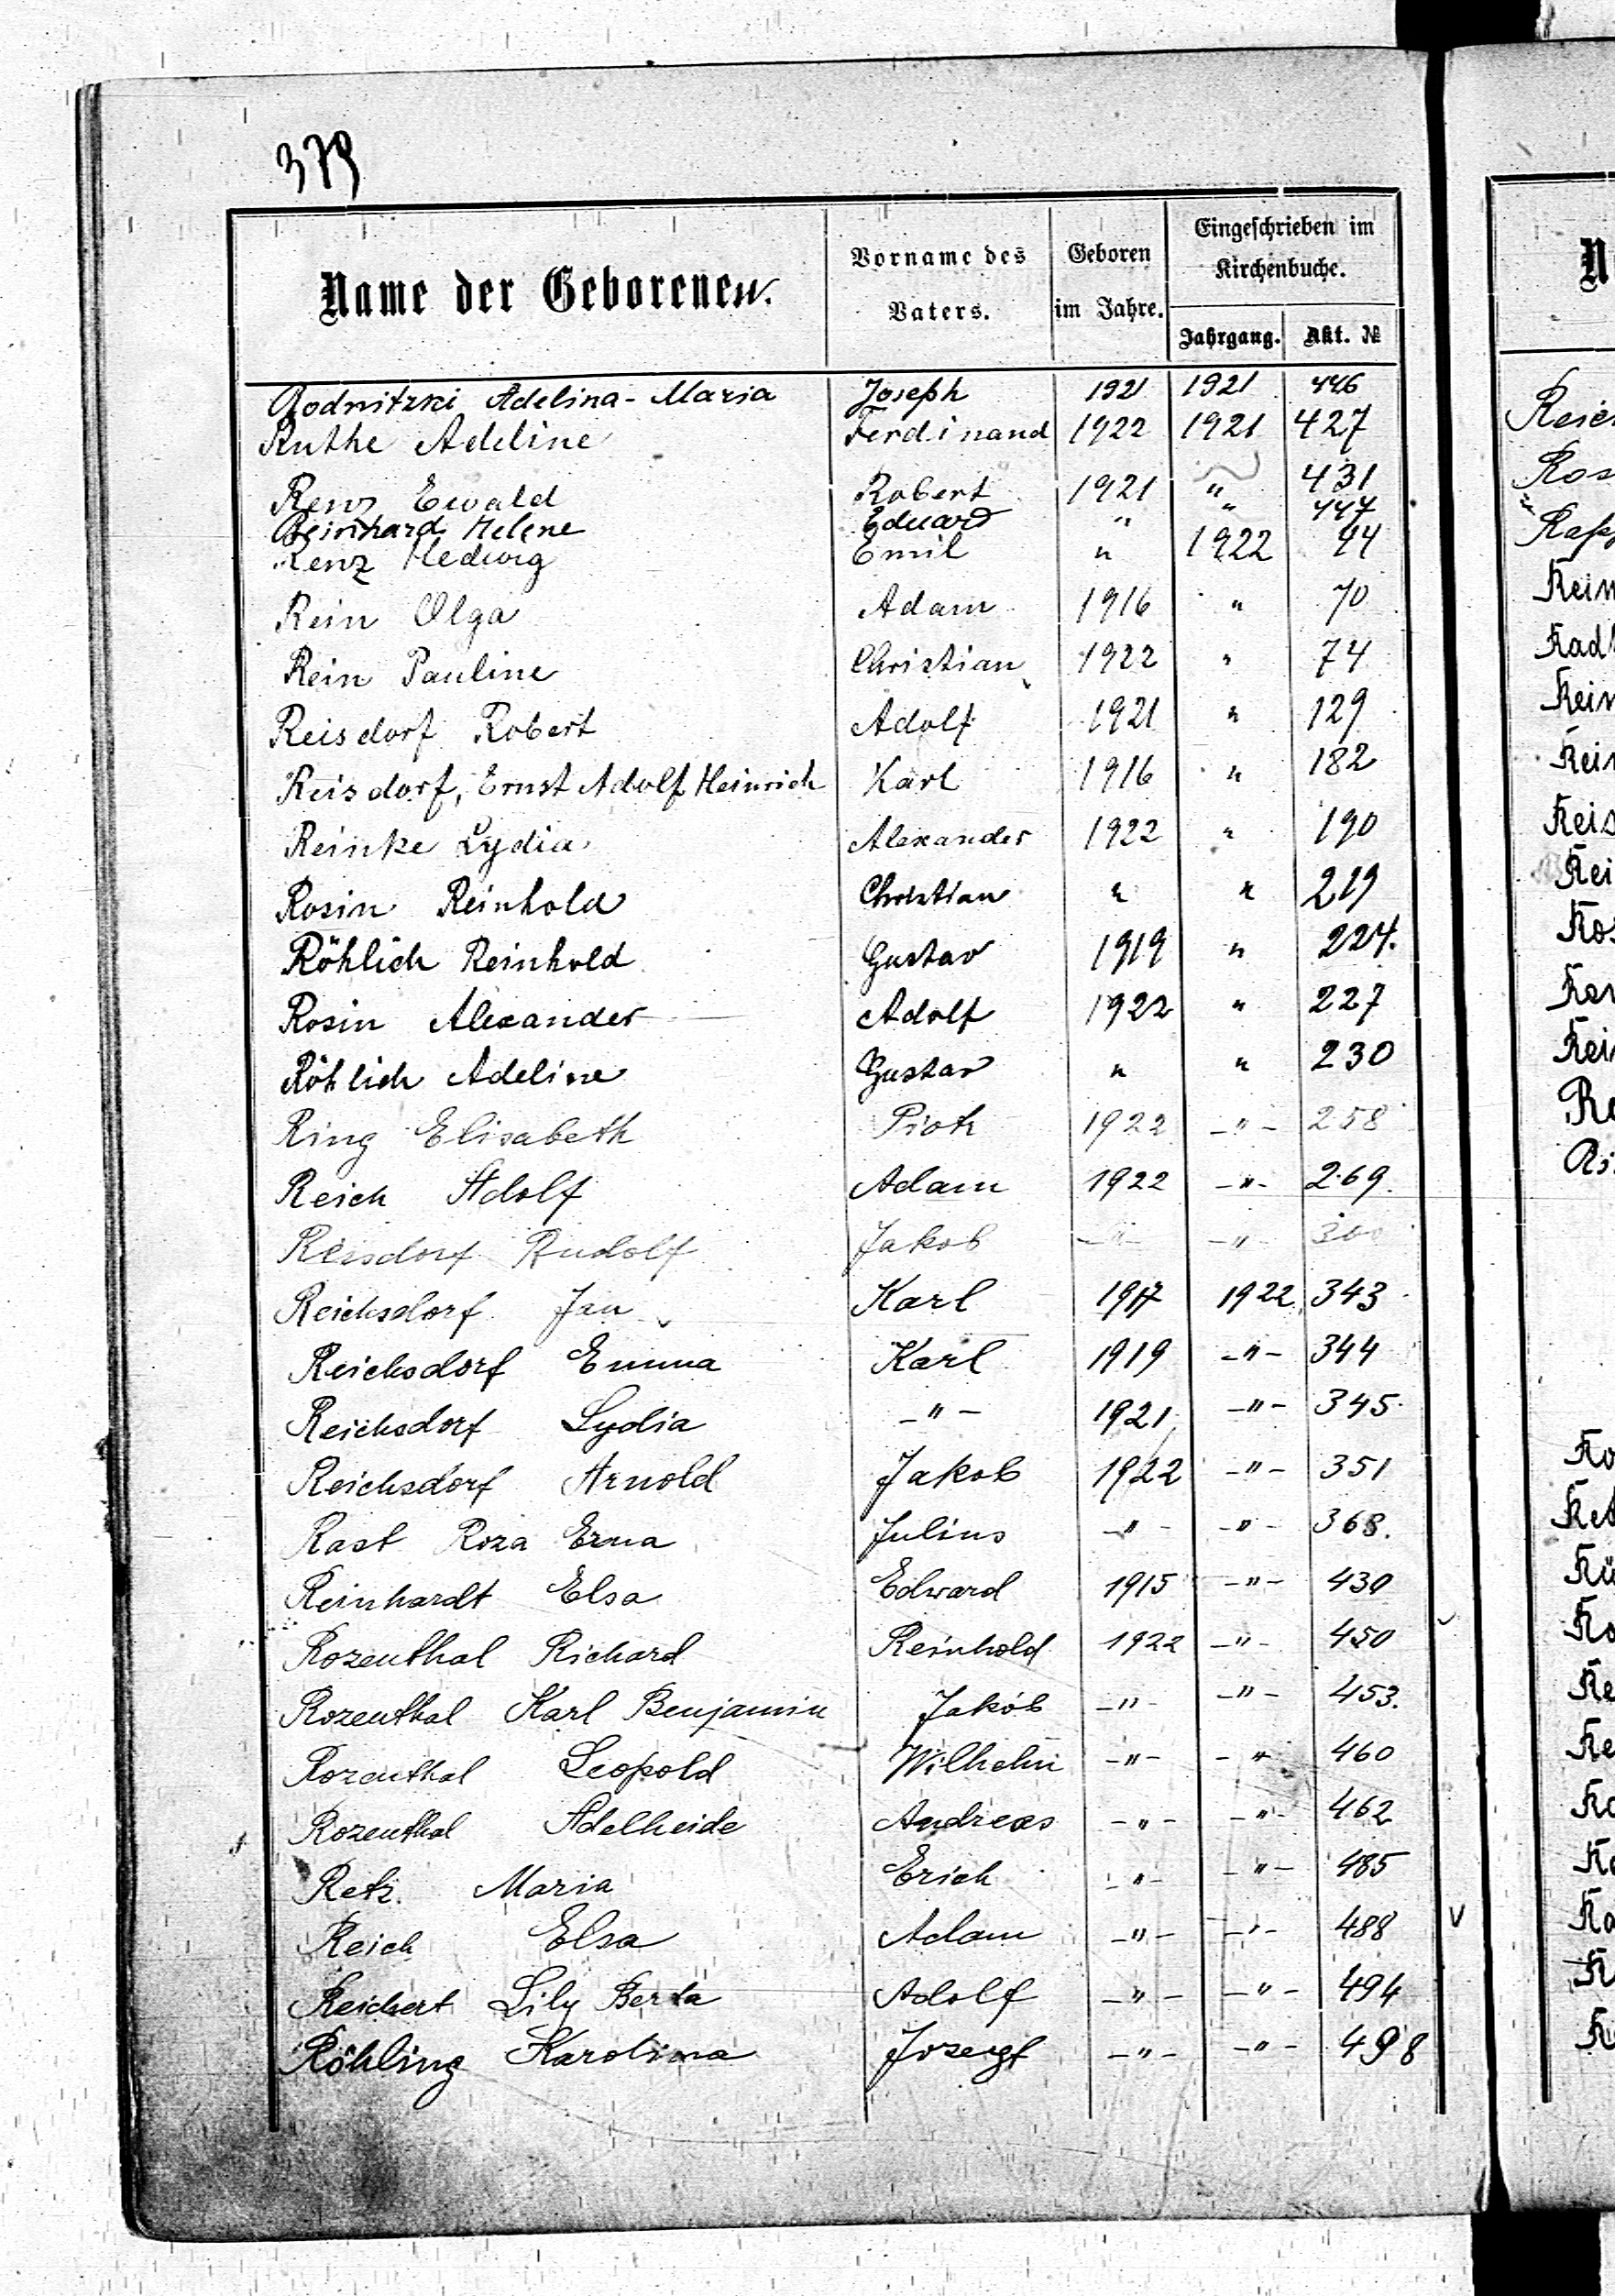 379
Name der Geborenen.
Vorname des Vaters.
Geboren im Jahre.
Eingeschrieben im Kirchenbuche.
Jahrgang. Akt. №
Rodnitzki Adelina-Maria Joseph 1921 1921 446
Ruthe Adeline Ferdinand 1922 1921 427
Renz Ewald Robert 1921 " 431
Reinhard Helene Eduard " " 447
Renz Hedwig Emil " 1922 44
Rein Olga Adam 1916 " 70
Rein Pauline Christian 1922 " 74
Reisdorf Robert Adolf 1921 " 129
Reisdorf, Ernst Adolf Heinrich Karl 1916 " 182
Reinke Lydia Alexander 1922 " 190
Rosin Reinhold Christian " " 219
Röhlich Reinhold Gustav 1919 " 224.
Rosin Alexander Adolf 1922 " 227
Röhlich Adeline Gustav " " 230
Ring Elisabeth Piotr 1922 -"- 258
Reich Adolf Adam 1922 -"- 269.
Reisdorf Rudolf Jakob -"- -"- 300
Reichsdorf Jan Karl 1917 1922 343
Reichsdorf Emma Karl 1919 -"- 344
Reichsdorf Lydia -"- 1921 -"- 345.
Reichsdorf Arnold Jakob 1922 -"- 351
Rast Roza Erna Julius -"- -"- 368.
Reinhardt Elsa Edward 1915 -"- 430
Rozenthal Richard Reinhold 1922 -"- 450
Rozenthal Karl Benjamin Jakób -"- -"- 453.
Rozenthal Leopold Wilhelm -"- -"- 460
Rozenthal Adelheide Andreas -"- -"- 462
Retz. Maria Erich -"- -"- 485
Reich Elsa Adam -"- -"- 488
Reichert Lily Berta Adolf -"- -"- 494
Röhling Karolina Jozef -"- -"- 498